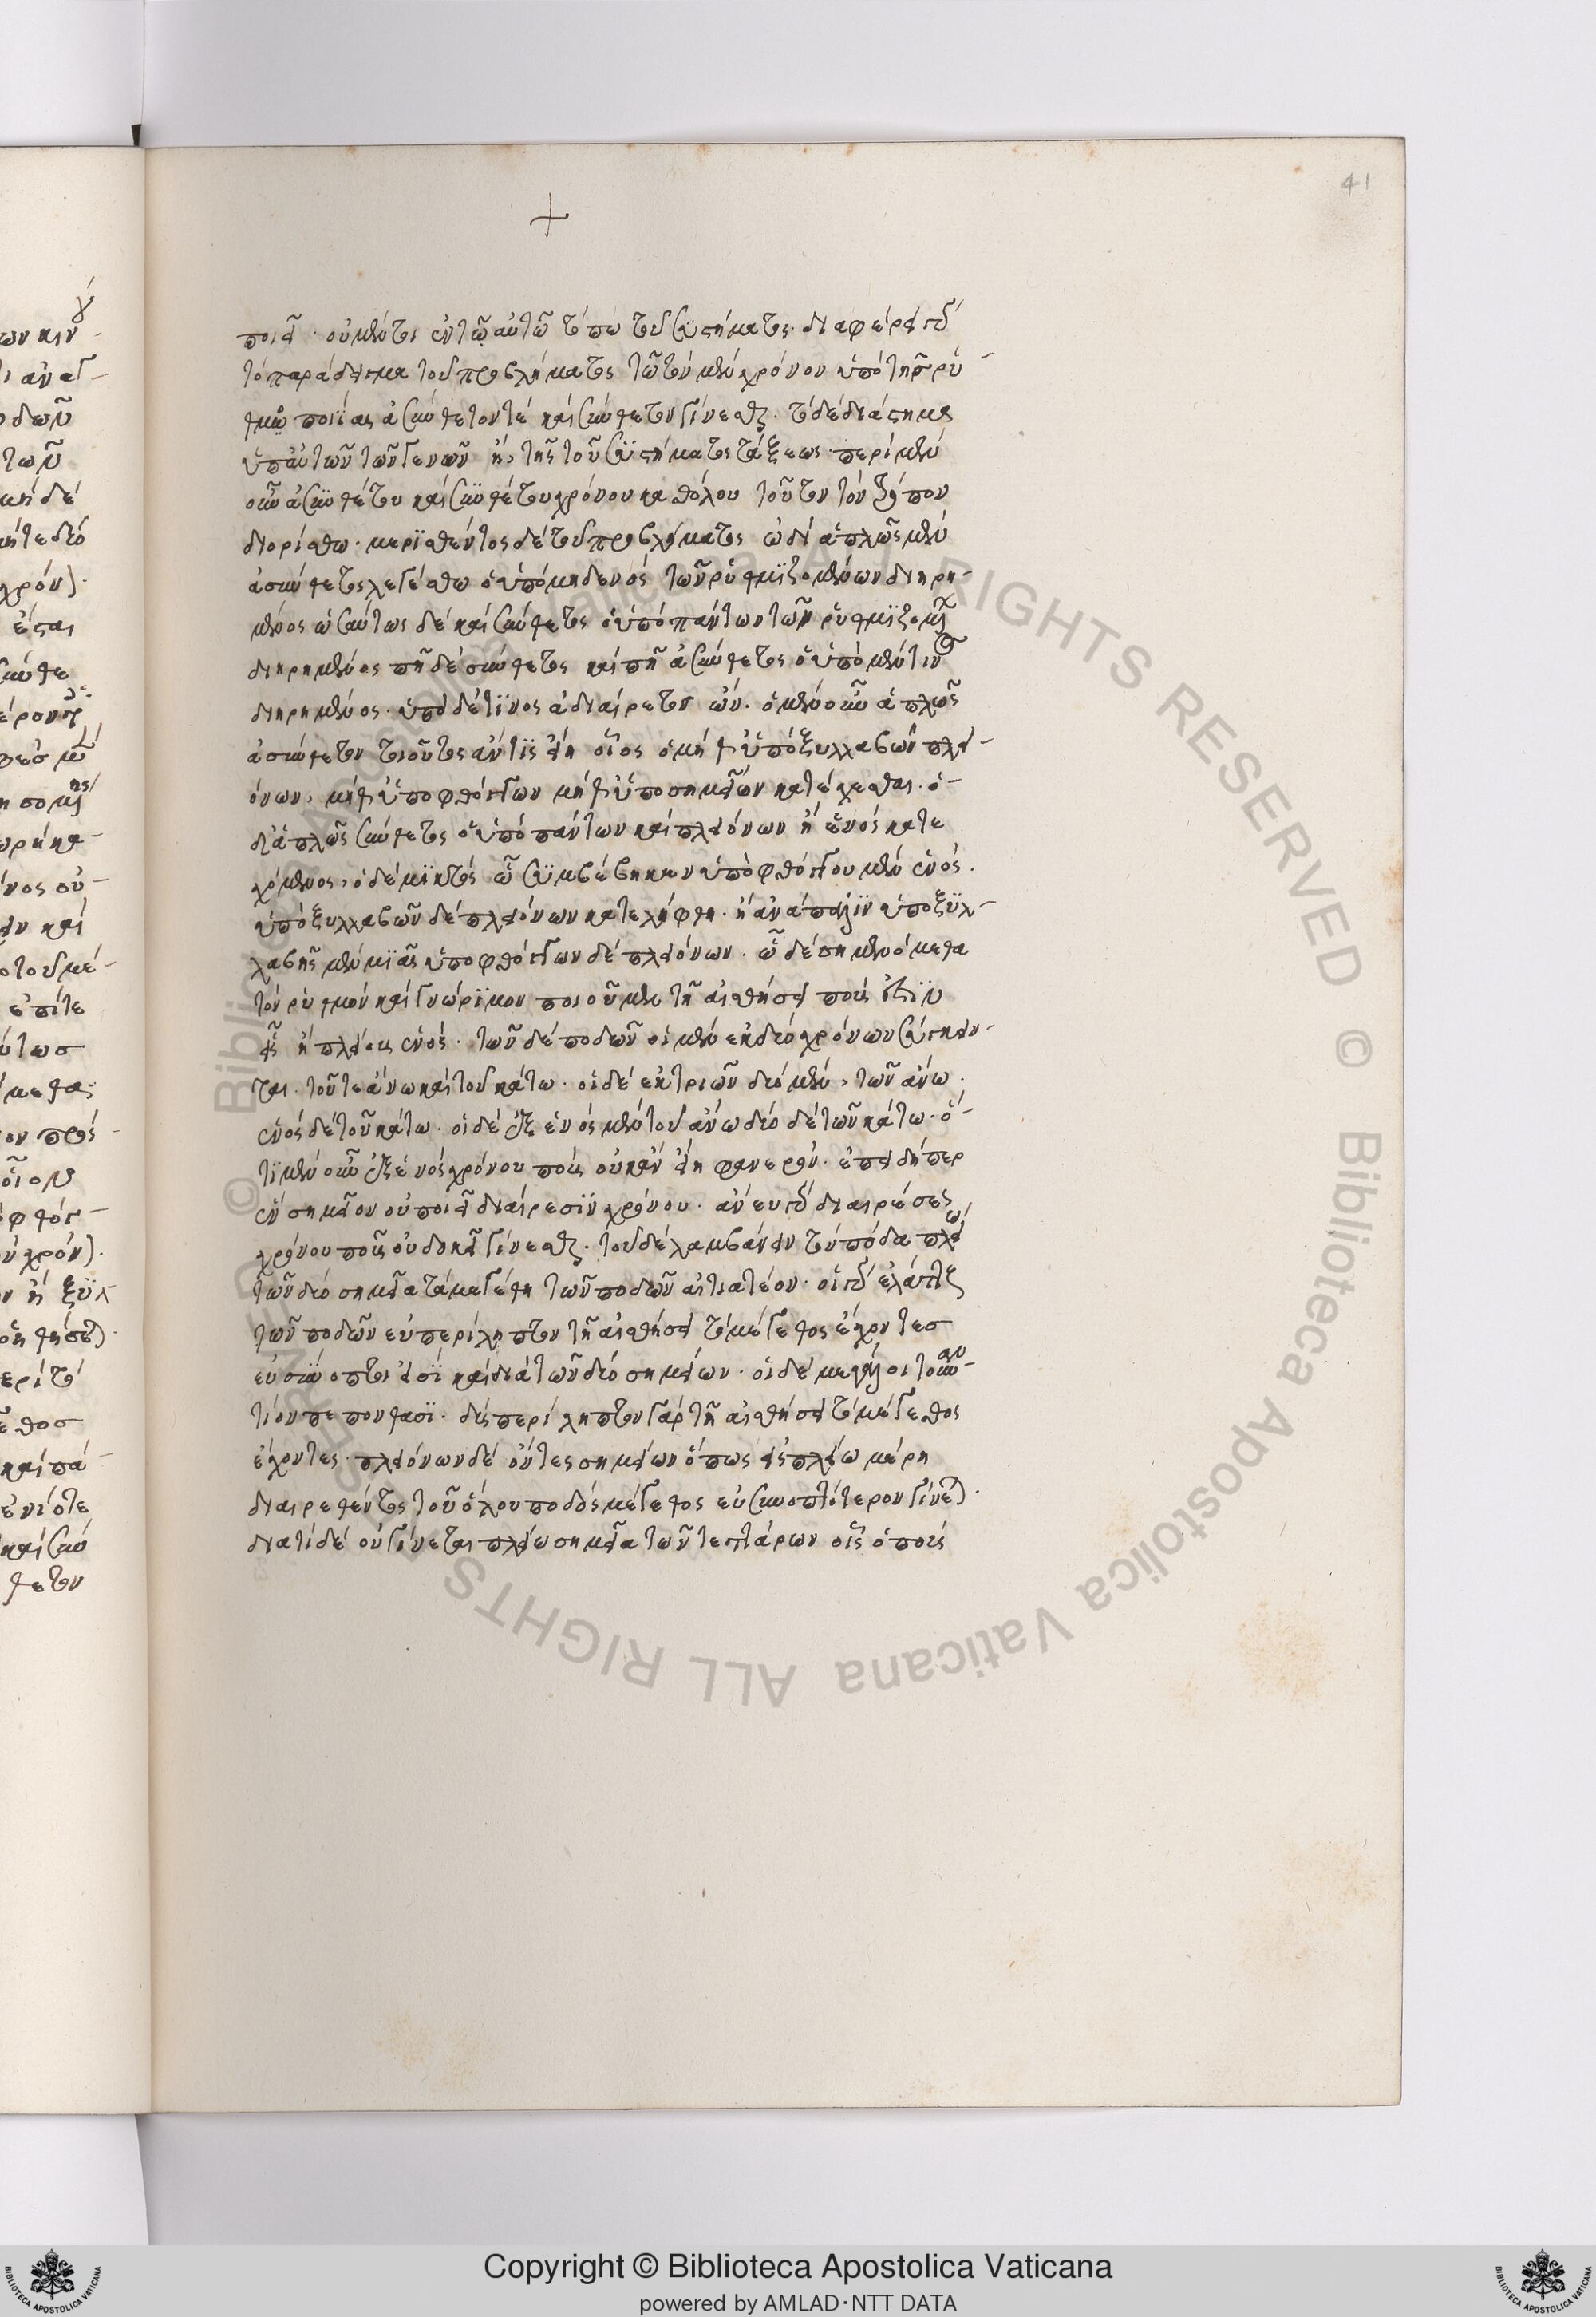 41
ποιεῖ · οὐ μέντοι ἐν τῷ αὐτῷ τόπῳ τοῦ συστήματος. διαφέρει δὲ
τὸ παράδειγμα τοῦ προβλήματος τῷ τὸν μὲν χρόνον ὑπὸ τῆς ῥυ-
θμοποιίας ἀσύνθετόν τε καὶ σύνθετον γίνεσθαι. τὸ δὲ διάστημα
ὑπ' αὐτῶν τῶν γενῶν ἢ, τῆς τοῦ συστήματος τάξεως. περὶ μὲν
οὖν ἀσυνθέτου καὶ συνθέτου χρόνου καθόλου τοῦτον τὸν τρόπον
διωρίσθω. μερισθέντος δὲ τοῦ προβλήματος ὡδὶ ἁπλῶς μὲν
ἀσύνθετος λεγέσθω ὁ ὑπὸ μηδενὸς τῶν ῥυθμιζομένων διῃρη-
μένος ὡσαύτως δὲ καὶ σύνθετος ὁ ὑπὸ πάντων τῶν ῥυθμιζομένων
διῃρημένος πῇ δὲ σύνθετος καὶ πῇ ἀσύνθετος ὁ ὑπὸ μέν τινος
διῃρημένος. ὑπὸ δέ τινος ἀδιαίρετος ὤν. ὁ μὲν οὖν ἁπλῶς
ἀσύνθετον τοιοῦτος ἄν τις εἴη οἷος ὁ μήθ' ὑπὸ ξυλλαβῶν πλει-
όνων, μήθ' ὑπὸ φθόγγων μήθ' ὑπὸ σημείων κατέχεσθαι. ὁ-
δ' ἁπλῶς σύνθετος ὁ ὑπὸ πάντων καὶ πλειόνων ἢ ἑνὸς κατε
χόμενος, ὁ δὲ μικτὸς ᾧ συμβέβηκεν ὑπὸ φθόγγου μὲν ἑνὸς.
ὑπὸ ξυλλαβῶν δὲ πλειόνων κατελήφθη. ἢ ἀνάπαλιν ὑπὸ ξυλ-
λαβῆς μὲν μιᾶς ὑπὸ φθόγγων δὲ πλειόνων. ᾧ δὲ σημαινόμεθα
τὸν ῥυθμὸν καὶ γνώριμον ποιοῦμεν τῇ αἰσθήσει πούς ἐστιν
εἷς ἢ πλείους ἑνὸς. τῶν δὲ ποδῶν οἱ μὲν ἐκ δύο χρόνων σύγκειν-
ται. τοῦ τε ἄνω καὶ τοῦ κάτω. οἱ δὲ ἐκ τριῶν δύο μὲν, τῶν ἄνω.
ἑνὸς δὲ τοῦ κάτω. οἱ δὲ ἐξ ἑνὸς μὲν τοῦ ἄνω δύο δὲ τῶν κάτω. ὅ-
τι μὲν οὖν ἐξ ἑνὸς χρόνου ποὺς οὐκ ἂν εἴη φανερόν. ἐπειδήπερ
ἓν σημεῖον οὐ ποιεῖ διαίρεσιν χρόνου. ἄνευ δὲ διαιρέσεως
χρόνου ποὺς οὐ δοκεῖ γίνεσθαι. τοῦ δὲ λαμβάνειν τὸν πόδα πλείω
τῶν δύο σημεῖα τὰ μεγέθη τῶν ποδῶν αἰτιατέον. οἱ δὲ ἐλάττους
τῶν ποδῶν εὐπερίληπτον τῇ αἰσθήσει τὸ μέγεθος ἔχοντες
εὐσύνοπτοί εἰσι καὶ διὰ τῶν δύο σημείων. οἱ δὲ μεγάλοι τοὐναν-
τίον πεπόνθασι. δυσπερίληπτον γὰρ τῇ αἰσθήσει τὸ μέγεθος
ἔχοντες. πλειόνων δὲ ὄντες σημείων ὅπως εἰς πλείω μέρη
διαιρεθέντος τοῦ ὅλου ποδὸς μέγεθος εὐσυνοπτότερον γίνεται.
διατὶ δὲ οὐ γίνεται πλείω σημεῖα τῶν τεττάρων οἷς ὁ ποὺς
© Biblioteca Apostolica Vaticana ALL RIGHTS RESERVED © Biblioteca Apostolica Vaticana ALL RIGHTS RESERVED
Copyright © Biblioteca Apostolica Vaticana
powered by AMLAD·NTT DATA
BIBLIOTECA APOSTOLICA VATICANA
BIBLIOTECA APOSTOLICA VATICANA